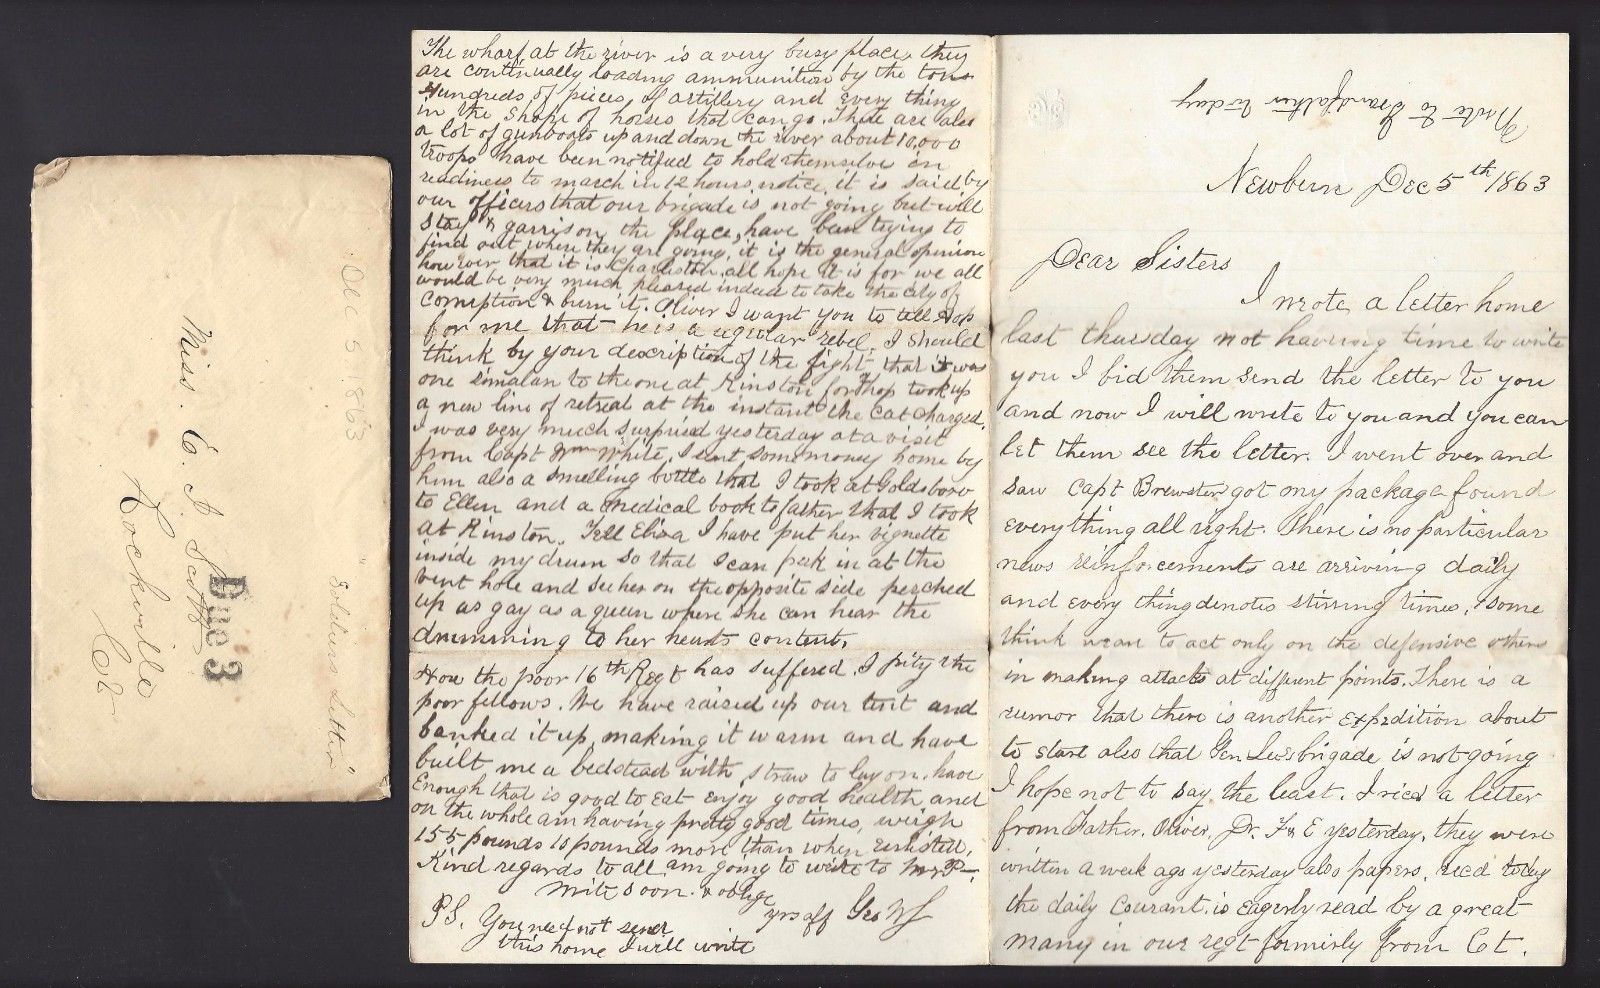 Miss. E. J. Scott
Rockville
Ct
Due 3
"Soldiers Letter"
Dec 5 1863
Wrote to Grandfather to day
Newbern Dec 5th 1863
Dear Sisters
I wrote a letter home
last thursday not having time to write
you I bid them send the letter to you
and now I will write to you and you can
let them see the letter. I went over and
saw Capt Brewster got my package found
everything all right. There is no particular
news reinforcements are arriving daily
and every thing denotes stirring times, some
think we are to act only on the defensive others
in making attacks at different points. There is a
rumor that there is another expedition about
to start also that Gen Lees brigade is not going
I hope not to say the least. I recd a letter
from Father, Oliver, Dr. F & E yesterday, they were
written a week ago yesterday also papers, recd today
the daily Courant. is eagerly read by a great
many in our regt formerly from Ct.
The wharf at the river is a very busy place, they
are continually loading ammunition by the tons
Hundreds of pieces of artillery and every thing
in the shape of horses that can go. There are also
a lot of gunboats up and down the river about 10,000
troops have been notified to hold themselves in
readiness to march in 12 hours notice, it is said by
our officers that our brigade is not going but will
stay & garrison the place, have been trying to
find out where they are going, it is the general opinion
however that it is Charleston. all hope it is for we all
would be very much pleased indeed to take the city of
corruption & burn it. Oliver I want you to tell Hop
for me that he is a regular rebel. I should
think by your description of the fight that it was
one simalan to the one at Kinston for Hop took up
a new line of retreat at the instant the Cat charged.
I was very much surprised yesterday at a visit
from Capt Wm White, I sent some money home by
him also a smelling bottle that I took at Goldsboro
to Ellen and a medical book to father that I took
at Kinston. Tell Eliza I have put her vignette
inside my drum so that I can peek in at the
vent hole and see her on the opposite side perched
up as gay as a queen where she can hear the
drumming to her hearts content.
How the poor 16th Regt has suffered. I pity the
poor fellows. We have raised up our tent and
banked it up, making it warm and have
built me a bedstead with straw to lay on. have
Enough that is good to eat enjoy good health and
on the whole am having pretty good times, weigh
155 pounds 10 pounds more than when enlisted.
Kind regards to all am going to write to Mr P—.
Write soon. & oblige
yrs aff Geo W S
P.S. You need not send
this home I will write